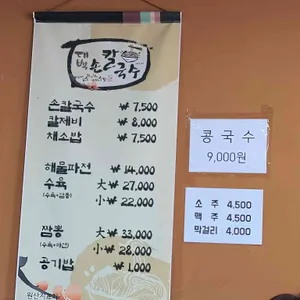 태백손칼국수
손칼국수 ₩ 7,500
칼제비 ₩ 8,000
채소밥 ₩ 7,500
해물파전 ₩ 14,000
수육 大 ₩ 27,000
小 ₩ 22,000
짬뽕 大 ₩ 33,000
小 ₩ 28,000
공기밥 ₩ 1,000
콩국수
9,000원
소 주 4,500
맥 주 4,500
막걸리 4,000